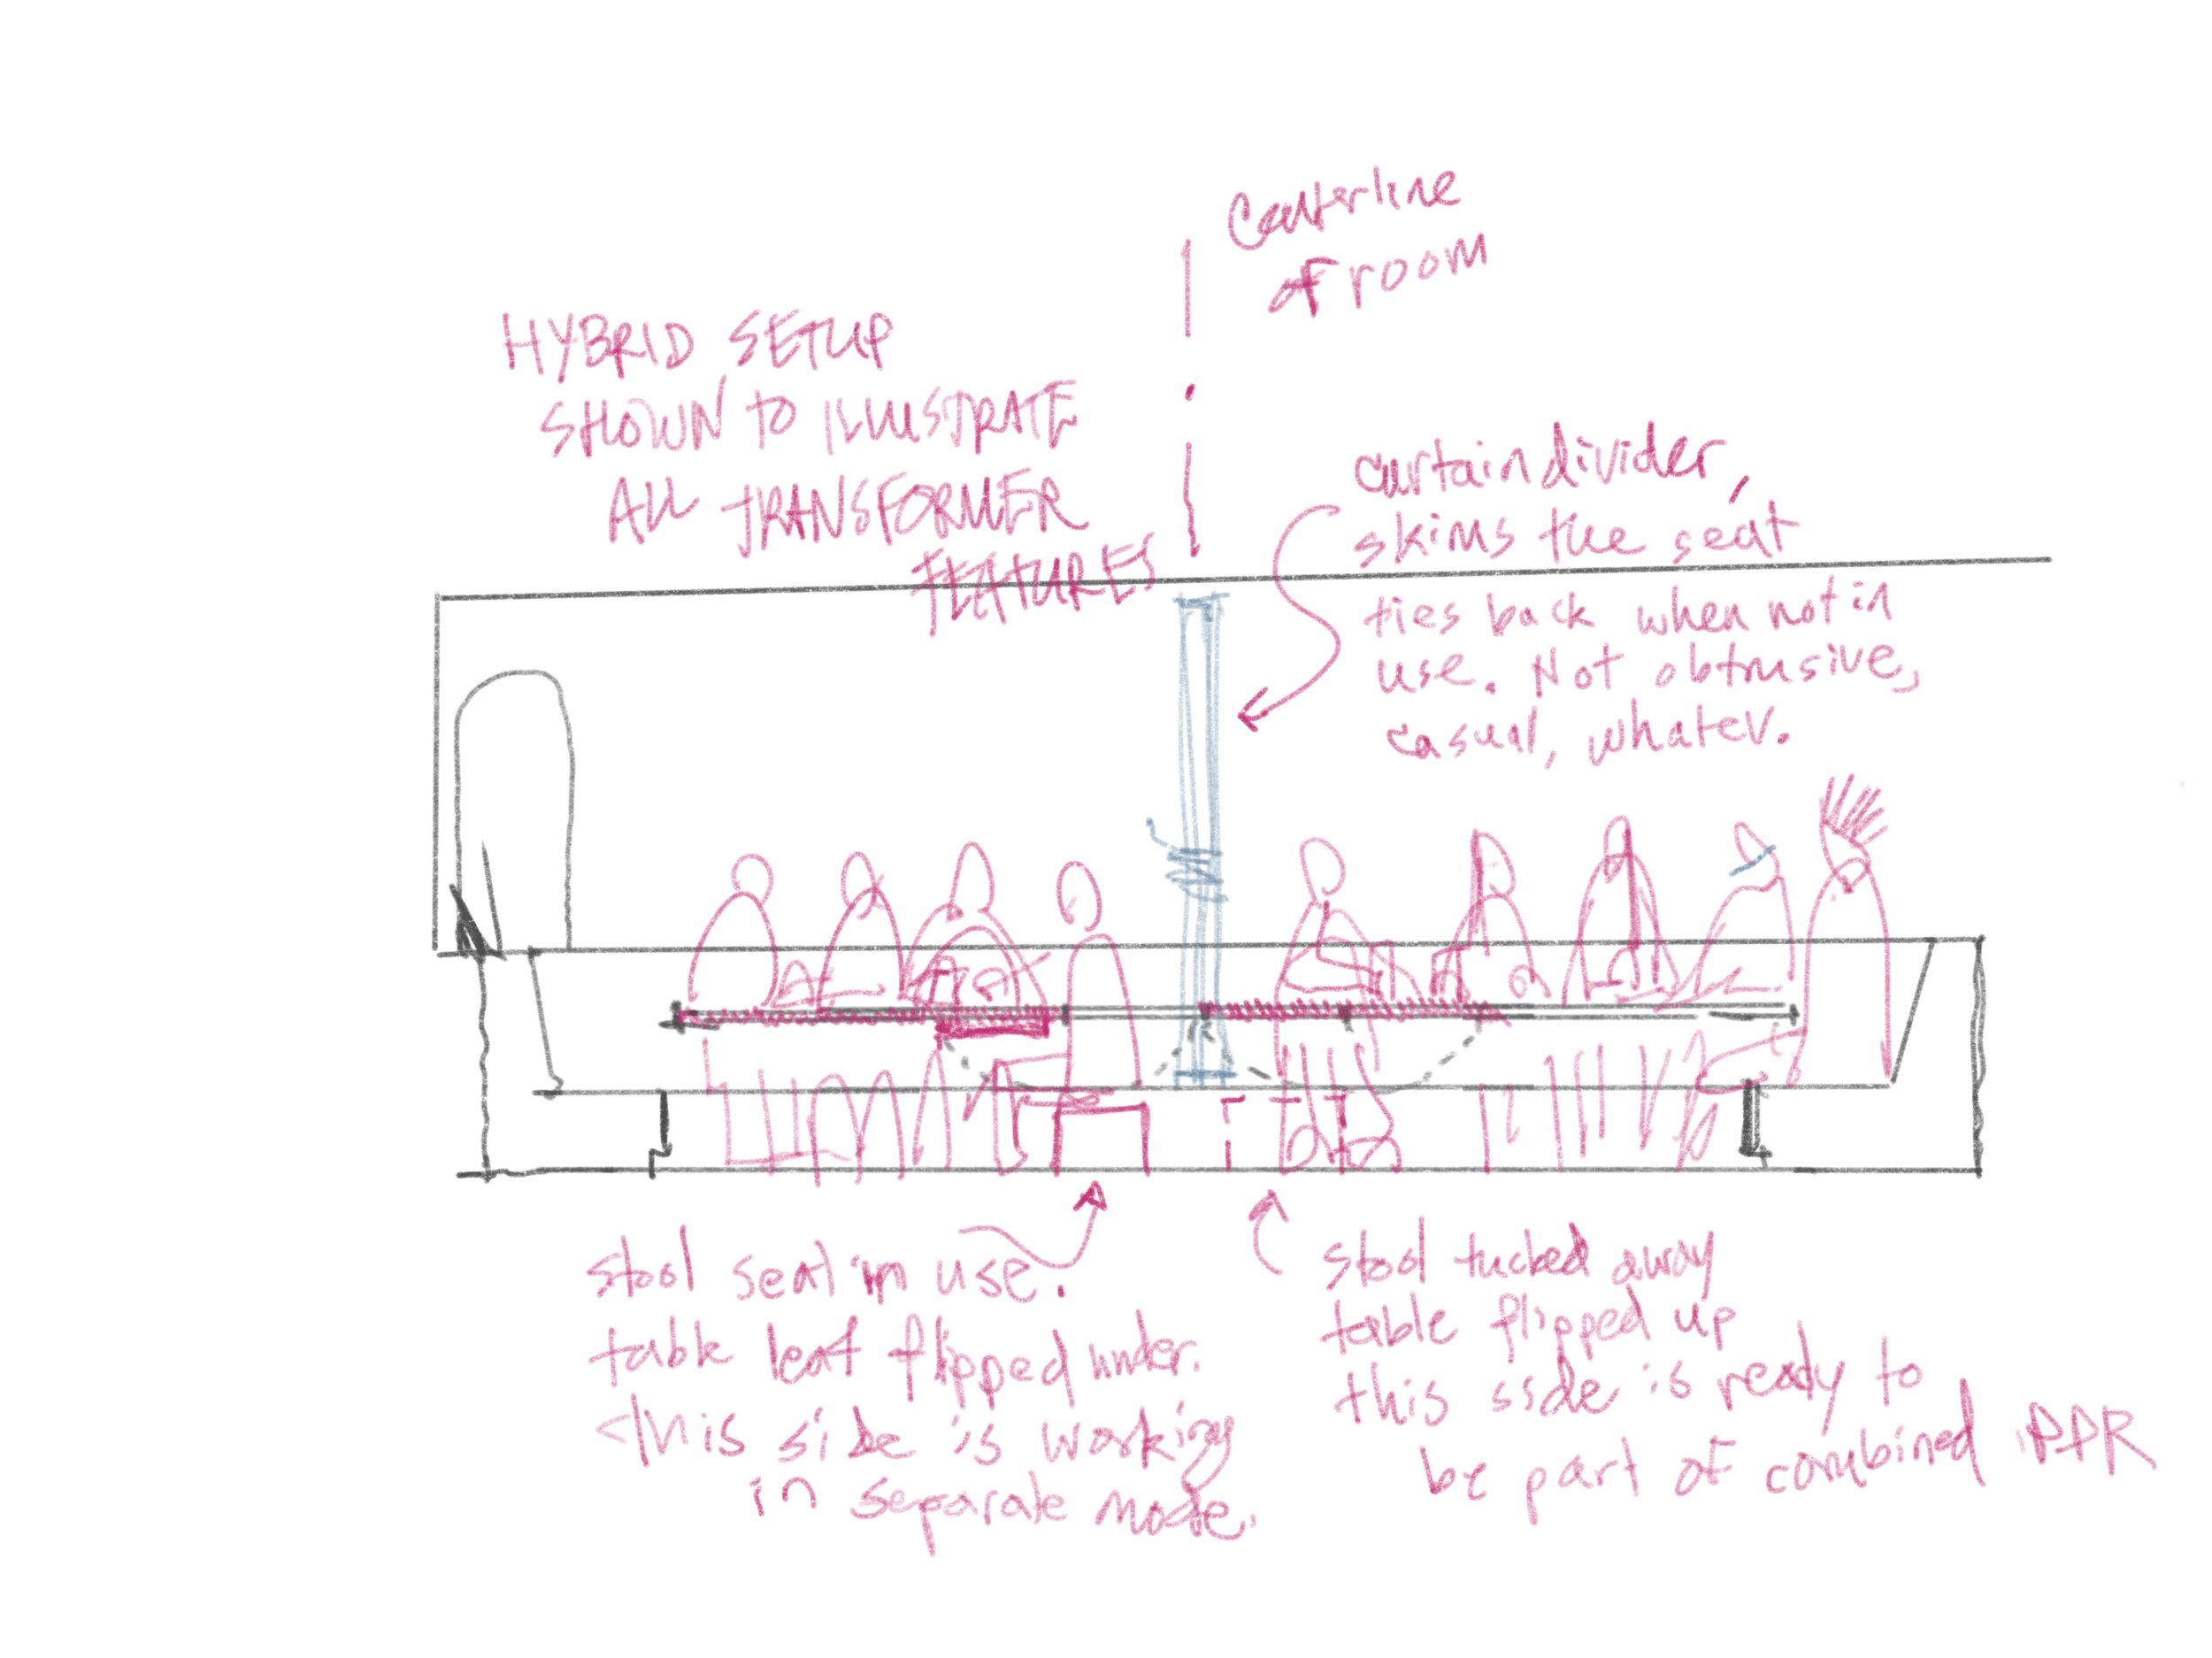 Centerline
of room
HYBRID SETUP
SHOWN TO ILLUSTRATE
ALL TRANSFORMER
FEATURES
curtain divider,
skims the seat
ties back when not in
use. Not obtrusive,
casual, whatev.
stool seat in use.
table leaf flipped under.
this side is working
in separate mode.
stool tucked away
table flipped up
this side is ready to
be part of combined PDR